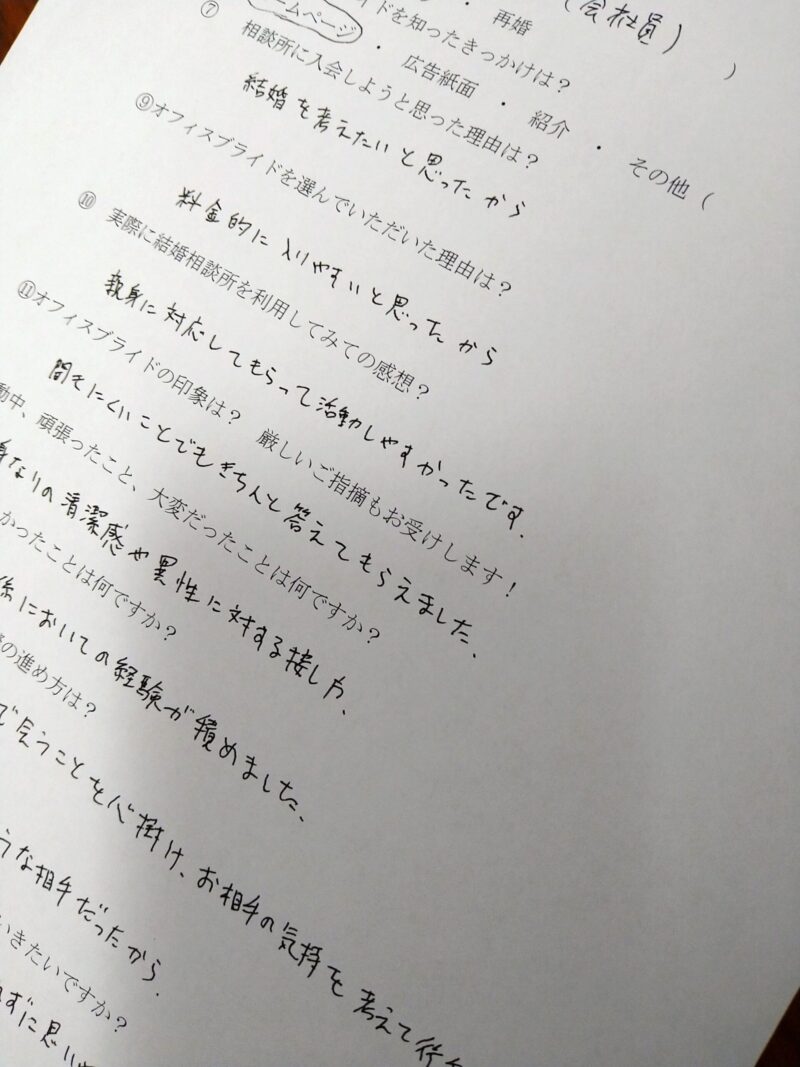 ・ 再婚 (会社員) )
⑦ イドを知ったきっかけは?
ームページ ・ 広告紙面 ・ 紹介 ・ その他 (
相談所に入会しようと思った理由は?
結婚を考えたいと思ったから
⑨オフィスブライドを選んでいただいた理由は?
料金的に入りやすいと思ったから
⑩ 実際に結婚相談所を利用してみての感想?
親身に対応してもらって活動しやすかったです.
⑪オフィスブライドの印象は? 厳しいご指摘もお受けします!
聞きにくいことでもきちんと答えてもらえました、
動中、頑張ったこと、大変だったことは何ですか?
身なりの清潔感や異性に対する接し方、
かったことは何ですか?
係においての経験が積めました、
の進め方は?
で会うことを心掛け、お相手の気持を考えて行
うな相手だったから.
いきたいですか?
ずに思いや